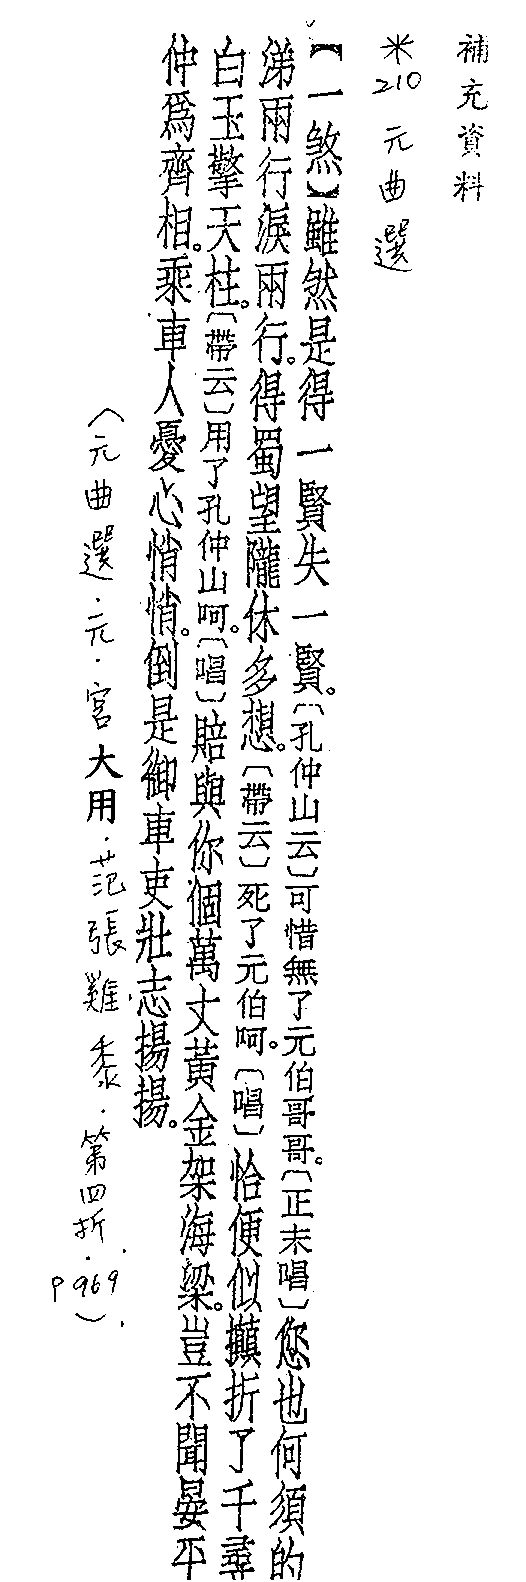 補充資料
米210 元曲選
【一煞】雖然是得一賢失一賢。〔孔仲山云〕可惜無了元伯哥哥。〔正末唱〕您也何須的
涕兩行淚兩行。得蜀望隴休多想。〔帶云〕死了元伯呵。〔唱〕恰便似攧折了千尋
白玉擎天柱。〔帶云〕用了孔仲山呵。〔唱〕賠與你個萬丈黃金架海梁。豈不聞晏平
仲爲齊相。乘車人憂心悄悄。倒是御車吏壯志揚揚。
（元曲選．元．宮大用．范張雞黍．第四折．P969）